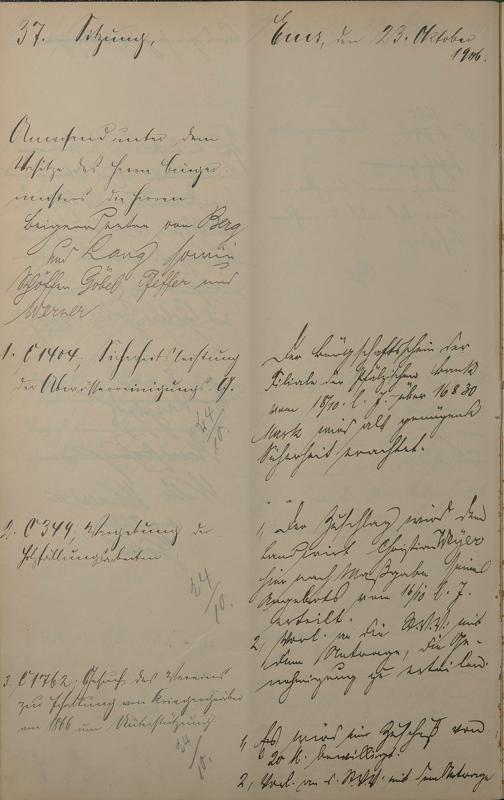 37. Sitzung.
Ems, den 23. Oktober
1906.
Anwesend unter dem
Vorsitze des Herrn Bürger-
meisters die Herren
Beigeordneten von Berg
und Lang sowie
Schöffen Göbel Pfeffer und
Werner
1. C 1404, Sicherheitsleistung
der Abwässerreinigungs G.
24/10.
Der Bürgschaftsschein der
Filiale der Pfälzischen Bank
vom 18/10. l. J. über 16830
Mark wird als genügende
Sicherheit erachtet.
2. C 349, Vergebung der
Holzfällungsarbeiten
24/10.
1, Der Zuschlag wird dem
Landwirt Christian Meier
hier nach Maßgabe seines
Angebots vom 16/10 l. J.
erteilt.
2, Vorl. an die St.V.V. mit
dem Antrage, die Ge-
nehmigung zu erteilen.
3. C 1762. Gesuch des Vereins
zur Erhaltung von Kriegergräber
von 1866 um Unterstützung.
24/10.
1, Es wird ein Zuschuß von
20 M. bewilligt.
2, Vorl. an d. St.V.V. mit dem Antrage